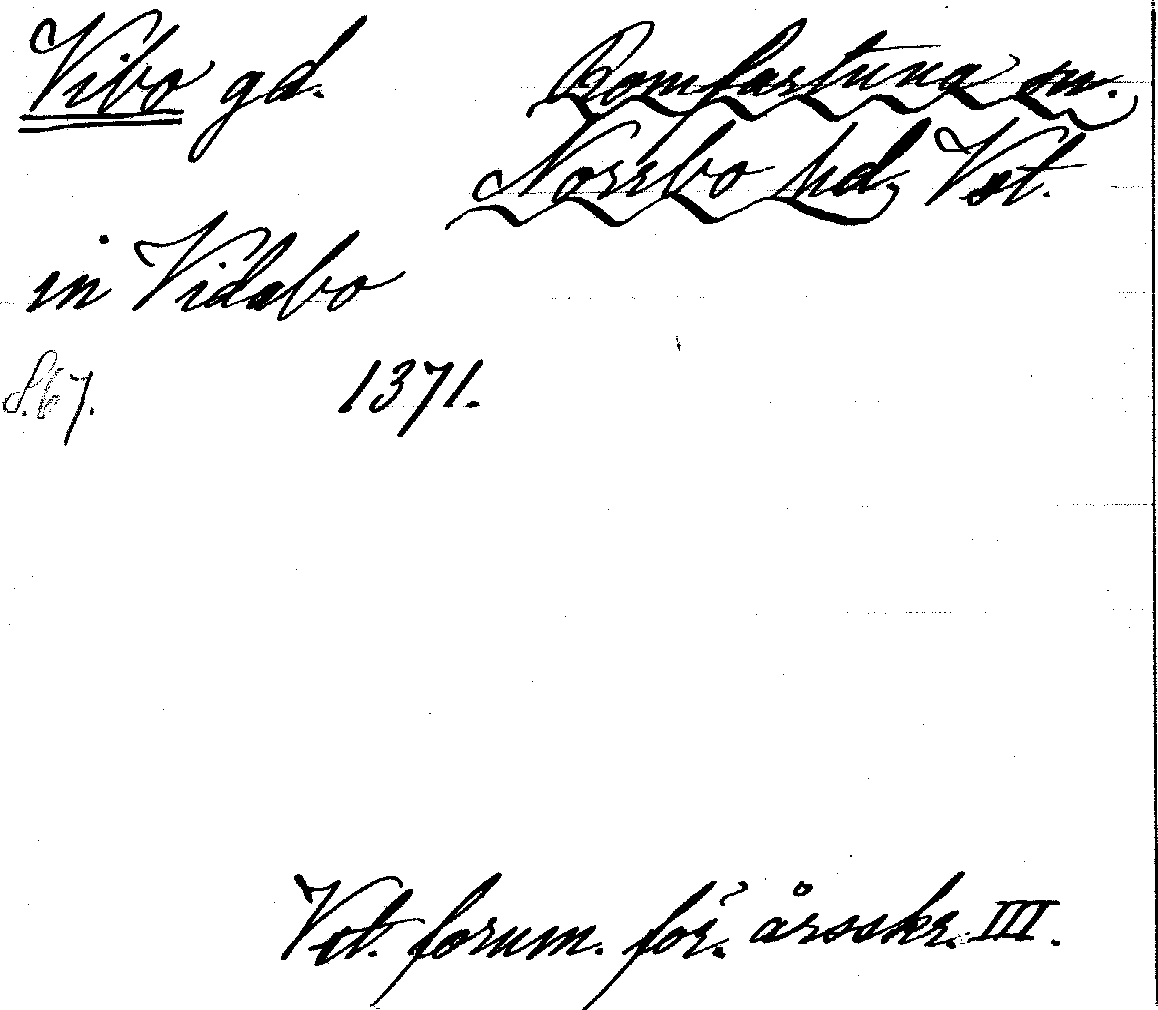 Vibo gd. Romfartuna sn.
Norrbo hd, Vst.
in Vidabo
S. 67. 1371.
Vst. fornm. för. årsskr. III.